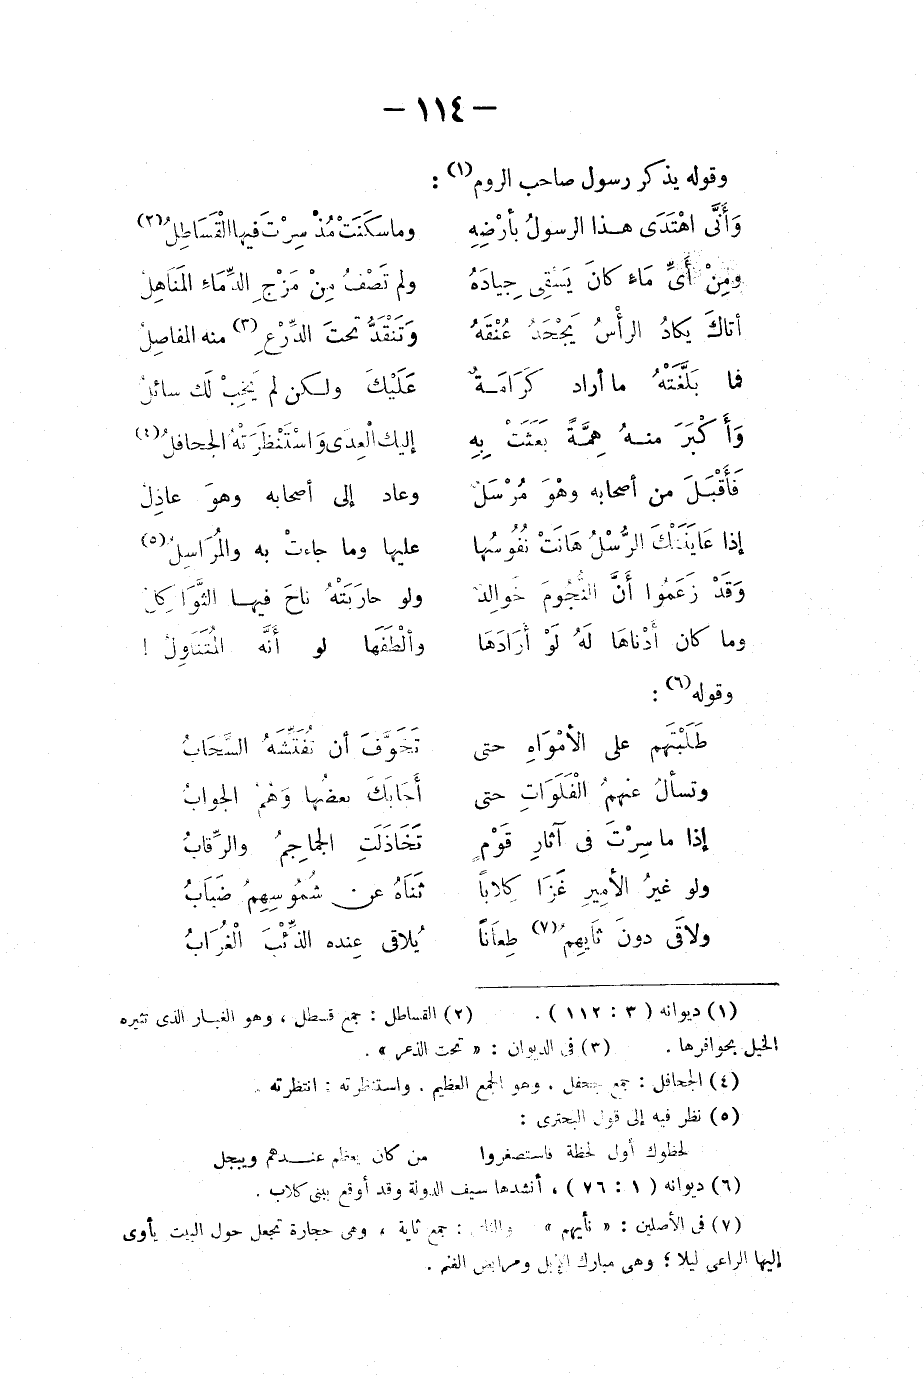 — ١١٤ —
وقوله يذكر رسول صاحب الروم (١) :
وَأَنَّى اهْتَدَى هذا الرسولُ بأرْضِهِ وما سَكَنَتْ مُذْ سِرْتَ فيها القَسَاطِلُ (٢)
ومِنْ أَىِّ مَاءٍ كانَ يَسْقِى جِيادَهُ ولم تَصْفُ مِنْ مَزْجِ الدِّمَاءِ المَنَاهِلُ
أتاكَ يكادُ الرأْسُ يَجْحَدُ عُنْقَهُ وَتَنْقَدُّ تحتَ الدِّرْعِ (٣) منه المفاصِلُ
فما بَلَّغَتْهُ ما أراد كَرَامَةٌ عَلَيْكَ ولكن لم يَخِبْ لك سائلُ
وَأَكْبَرَ منهُ هِمَّةً بَعَثَتْ بِهِ إليك الْعِدَى وَاسْتَنْظَرَتْهُ الجحافلُ (٤)
فَأَقْبَلَ من أصحابه وهْوَ مُرْسَلٌ وعاد إلى أصحابه وهوَ عاذِلُ
إذا عَايَنَتْكَ الرُّسْلُ هَانَتْ نُفُوسُها عليها وما جاءتْ به والمُرَاسِلُ (٥)
وَقَدْ زَعَمُوا أَنَّ النُّجُومَ خَوالِدٌ ولو حارَبَتْهُ ناحَ فيها الثَّوَاكِلُ
وما كان أَدْناهَا لَهُ لَوْ أَرَادَهَا وألْطَفَهَا لو أَنَّه المُتَنَاوِلُ !
وقوله (٦) :
طَلَبْتَهم على الأمْوَاهِ حتى تَخَوَّفَ أن تُفَتِّشَهُ السَّحَابُ
وتسألُ عنهمُ الْفَلَوَاتِ حتى أَجَابَكَ بعضُها وَهُمُ الجوابُ
إذا ما سِرْتَ فى آثارِ قَوْمٍ تَخَاذَلَتِ الجماجِمُ والرِّقابُ
ولو غيرُ الأميرِ غَزَا كِلاباً ثَنَاهُ عن شُمُوسِهِمُ ضَبَابُ
ولاقَى دونَ ثَأْيِهِمُ (٧) طِعَاناً يُلاقى عِنده الذِّئْبَ الْغُرَابُ
(١) ديوانه ( ٣ : ١١٢ ) . (٢) القساطل : جمع قسطل ، وهو الغبار الذى تثيره
الخيل بحوافرها . (٣) فى الديوان : « تحت الذعر » .
(٤) الجحافل : جمع جحفل . وهو الجمع العظيم . واستنظرته : انتظرته .
(٥) نظر فيه إلى قول البحترى :
لحظوك أول لحظة فاستصغروا من كان يعظم عندهم ويبجل
(٦) ديوانه ( ١ : ٧٦ ) ، أنشدها سيف الدولة وقد أوقع ببنى كلاب .
(٧) فى الأصلين : « نأيهم » : جمع ثاية ، وهى حجارة تجعل حول البيت يأوى
إليها الراعى ليلا ؛ وهى مبارك الإبل ومرابض الغنم .